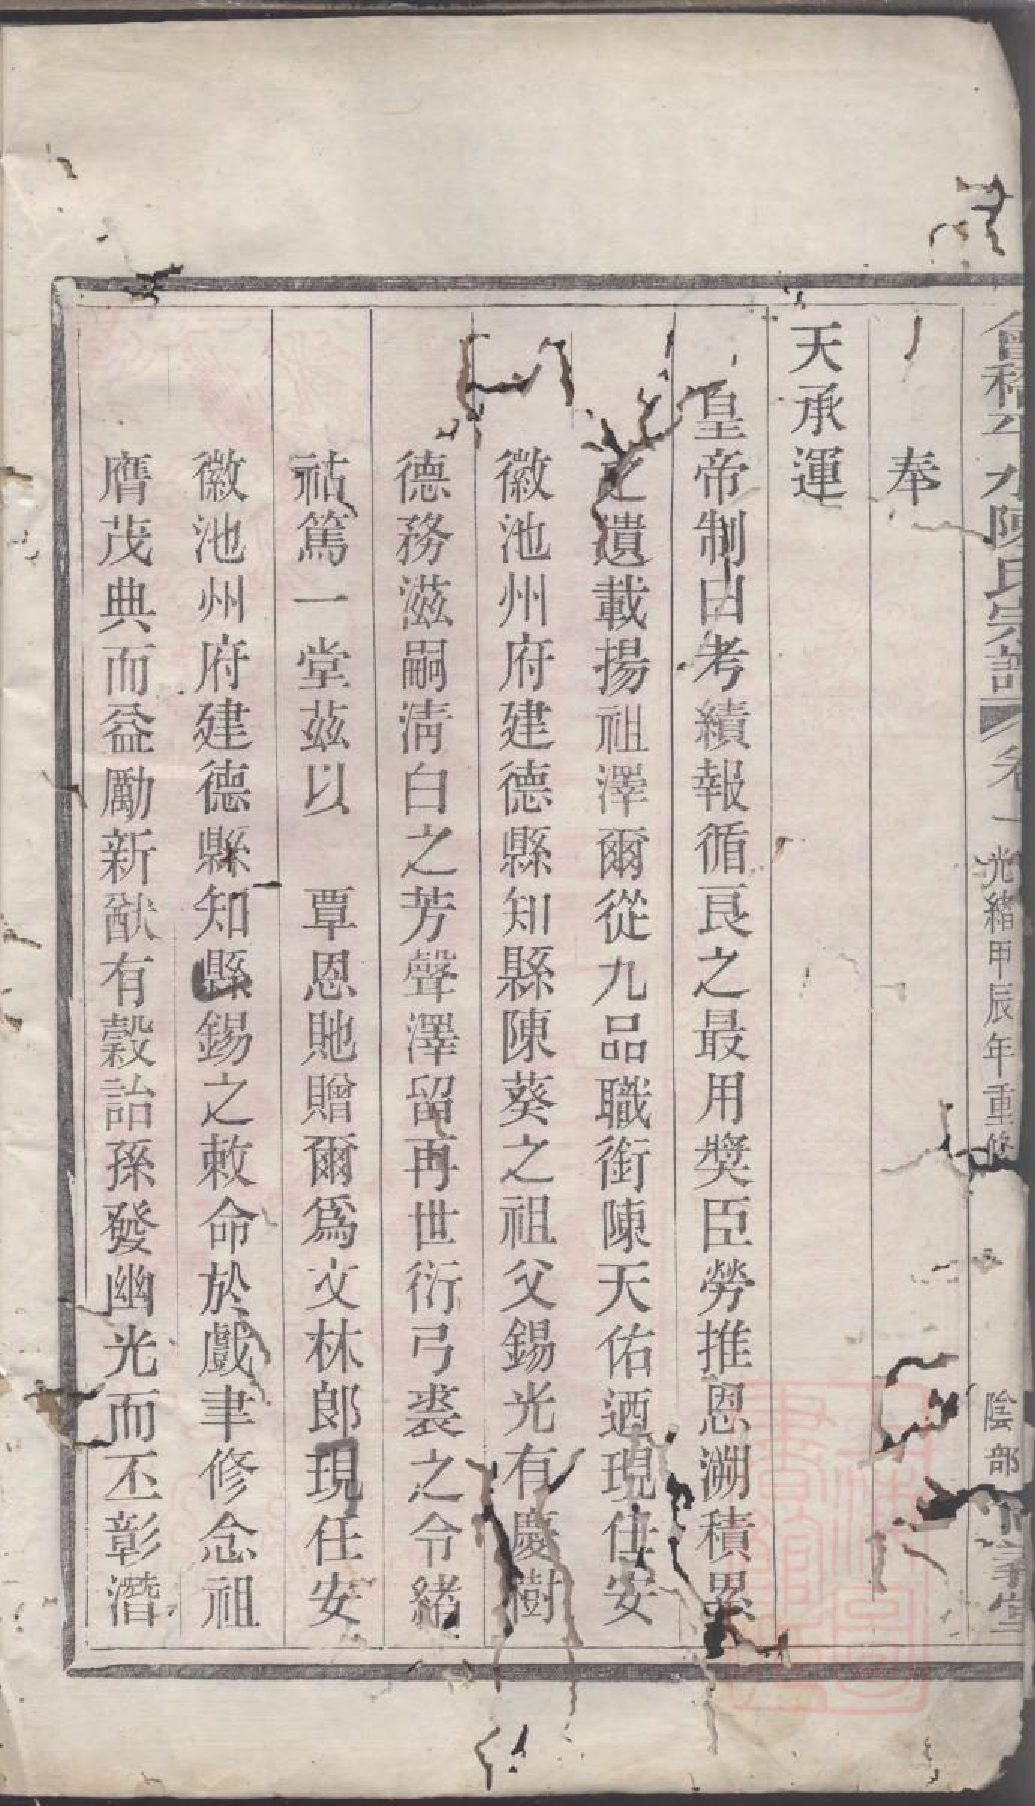 會稽平水陳氏宗譜 卷一 光緒甲辰年重修 陰部
奉
天承運
皇帝制曰考績報循良之最用獎臣勞推恩溯積累
之遺載揚祖澤爾從九品職銜陳天佑迺現任安
徽池州府建德縣知縣陳葵之祖父錫光有慶樹
德務滋嗣清白之芳聲澤留再世衍弓裘之令緒
祜篤一堂茲以 覃恩貤贈爾爲文林郎現任安
徽池州府建德縣知縣錫之敕命於戲聿修念祖
膺茂典而益勵新猷有穀詒孫發幽光而丕彰潛